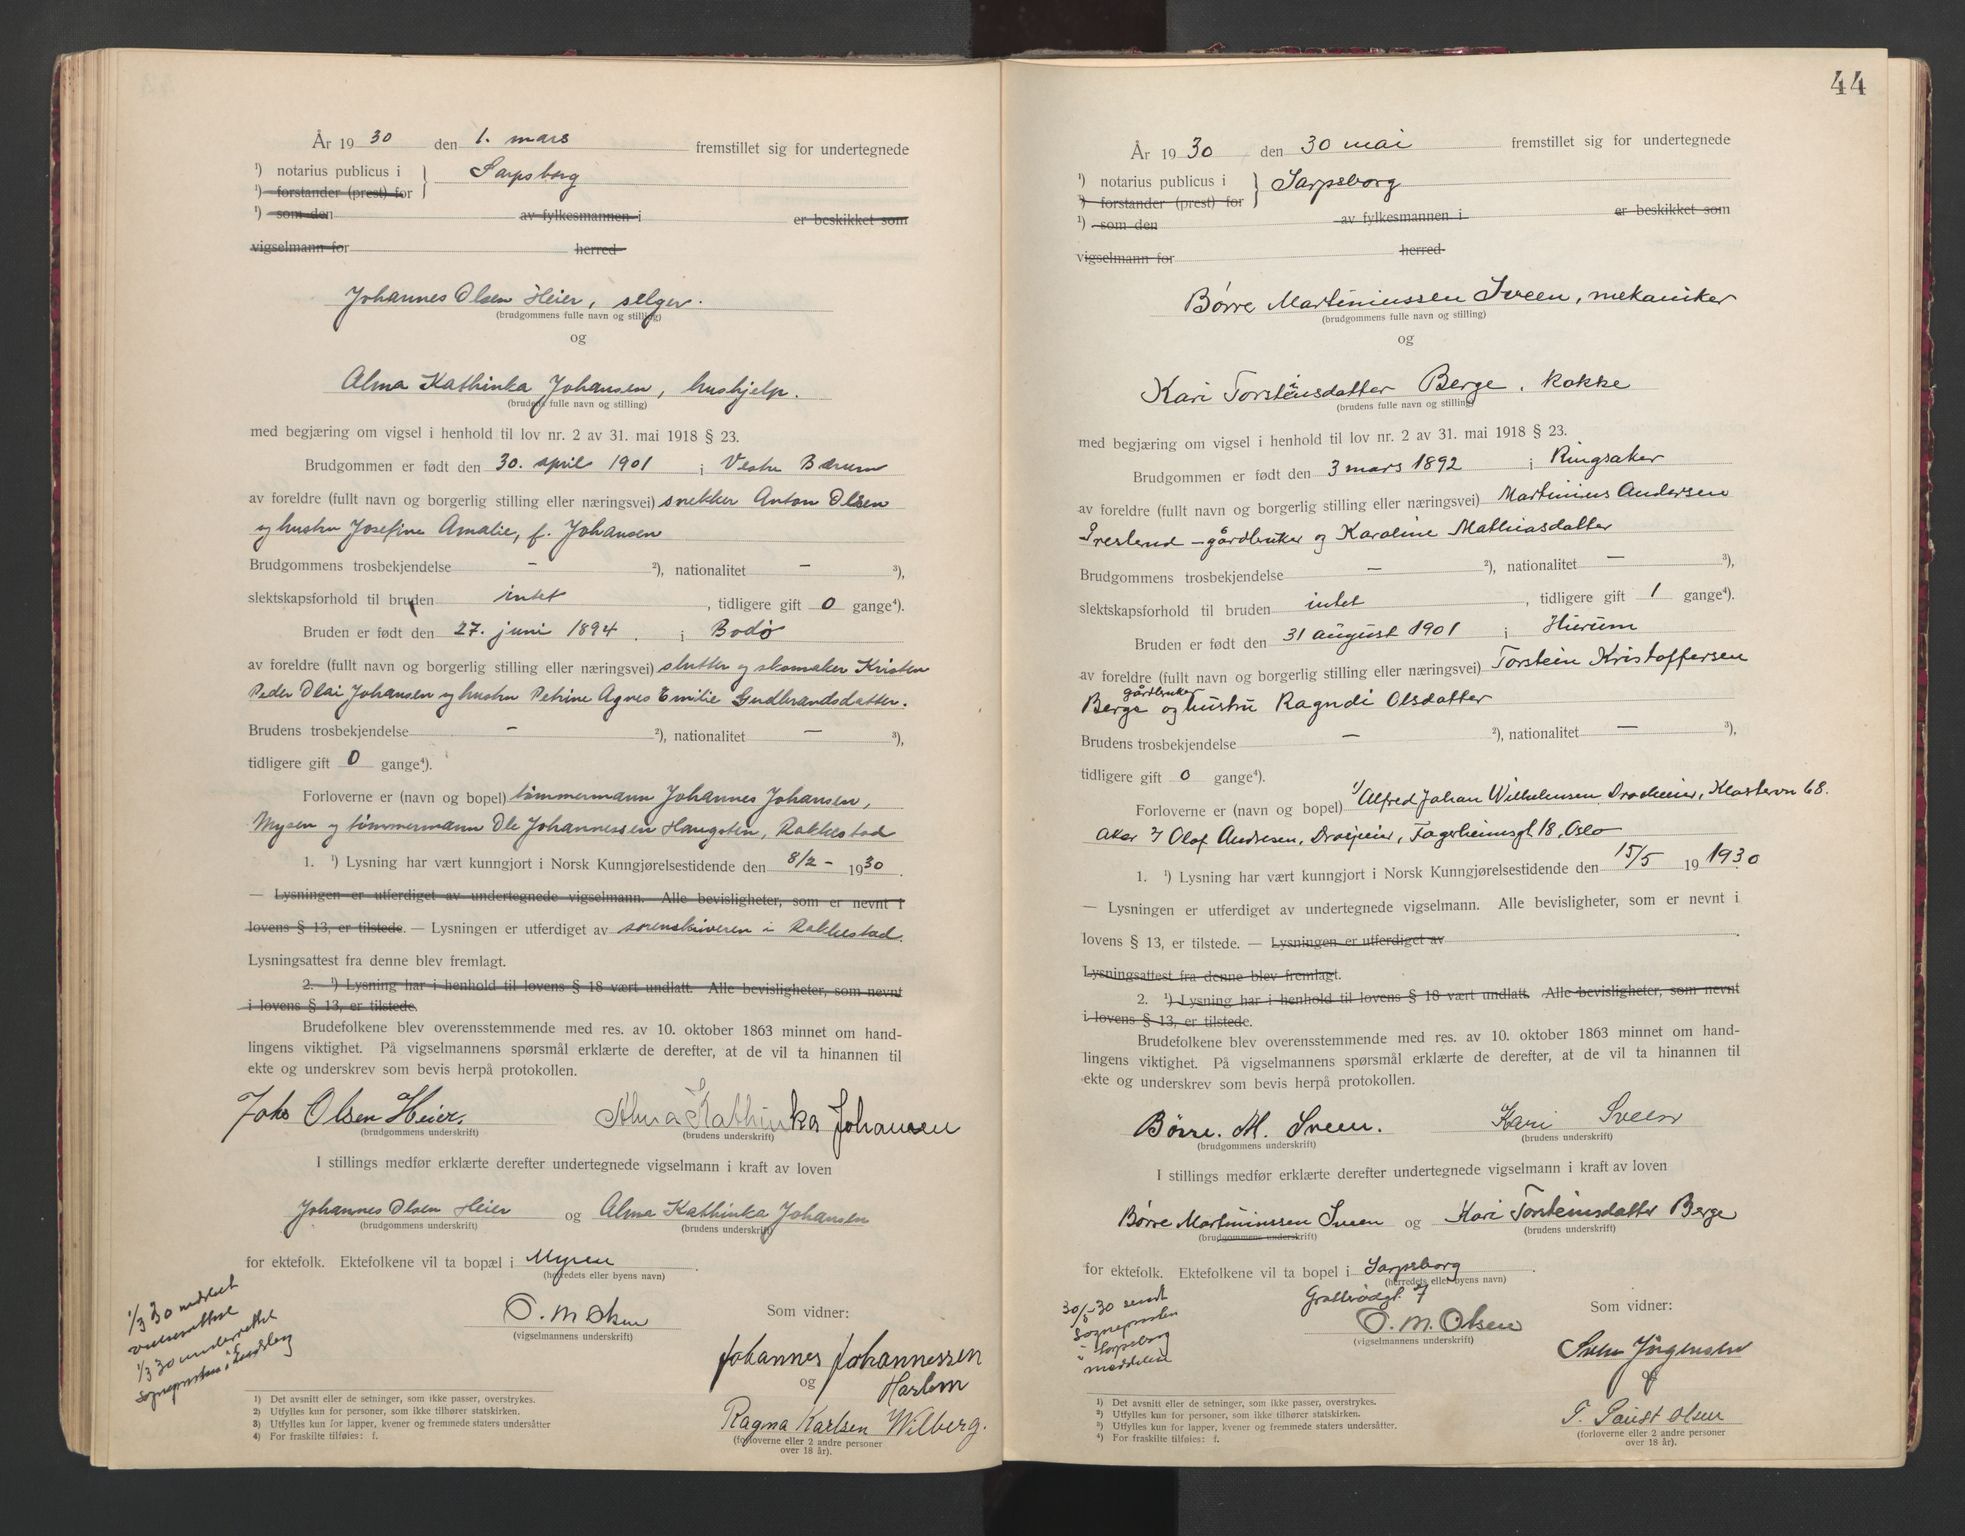 År 1930 den 1. mars fremstillet sig for undertegnede
¹) notarius publicus i } Sarpsborg
¹) forstander (prest) for
¹) som den av fylkesmannen i er beskikket som
vigselmann for herred
Johannes Olsen Heier, selger.
(brudgommens fulle navn og stilling)
og
Alma Kathinka Johansen, hushjelp.
(brudens fulle navn og stilling)
med begjæring om vigsel i henhold til lov nr. 2 av 31. mai 1918 § 23.
Brudgommen er født den 30. april 1901 i Vestre Bærum
av foreldre (fullt navn og borgerlig stilling eller næringsvei) snekker Anton Olsen
og hustru Josefine Amalie, f. Johansen
Brudgommens trosbekjendelse — ²), nationalitet — ³),
slektskapsforhold til bruden intet, tidligere gift 0 gange⁴).
Bruden er født den 27. juni 1894. i Bodø
av foreldre (fullt navn og borgerlig stilling eller næringsvei) slutter og skomaker Kristen
Peder Olai Johansen og hustru Petrine Agnes Emilie Gudbrandsdatter.
Brudens trosbekjendelse — ²), nationalitet — ³),
tidligere gift 0 gange⁴).
Forloverne er (navn og bopel) tømmermann Johannes Johansen,
Mysen og tømmermann Ole Johannessen Haugsten, Rakkestad
1. ¹) Lysning har vært kunngjort i Norsk Kunngjørelsestidende den 8/2 - 1930.
— Lysningen er utferdiget av undertegnede vigselmann. Alle bevisligheter, som er nevnt i
lovens § 13, er tilstede. — Lysningen er utferdiget av sorenskriveren i Rakkestad.
Lysningsattest fra denne blev fremlagt.
2. ¹) Lysning har i henhold til lovens § 18 vært undlatt. Alle bevisligheter, som nevnt
i lovens § 13, er tilstede.
Brudefolkene blev overensstemmende med res. av 10. oktober 1863 minnet om hand-
lingens viktighet. På vigselmannens spørsmål erklærte de derefter, at de vil ta hinannen til
ekte og underskrev som bevis herpå protokollen.
Johs Olsen Heier. Alma Kathinka Johansen
(brudgommens underskrift) (brudens underskrift)
I stillings medfør erklærte derefter undertegnede vigselmann i kraft av loven
Johannes Olsen Heier og Alma Kathinka Johansen
(brudgommens underskrift) (brudens underskrift)
for ektefolk. Ektefolkene vil ta bopæl i Mysen.
(herredets eller byens navn)
1/3 30 meddelt
vielsesattest
1/3 30 underrettet
sogneprosten i
O. M. Olsen
(vigselmannens underskrift)
Som vidner:
Johannes Johannessen
og Harlem
Ragna Karlsen Wilberg.
(forloverne eller 2 andre personer
over 18 år).
1) Det avsnitt eller de setninger, som ikke passer, overstrykes.
2) Utfylles kun for personer, som ikke tilhører statskirken.
3) Utfylles kun for lapper, kvener og fremmede staters undersåtter
4) For fraskilte tilføies: f.
44
År 1930 den 30 mai fremstillet sig for undertegnede
¹) notarius publicus i } Sarpsborg
¹) forstander (prest) for
¹) som den av fylkesmannen i er beskikket som
vigselmann for herred
Børre Martiniussen Sveen, mekaniker
(brudgommens fulle navn og stilling)
og
Kari Torsteinsdatter Berge, kokke
(brudens fulle navn og stilling)
med begjæring om vigsel i henhold til lov nr. 2 av 31. mai 1918 § 23.
Brudgommen er født den 3 mars 1892 i Ringsaker
av foreldre (fullt navn og borgerlig stilling eller næringsvei) Martinius Andersen
- gårdbruker og Karoline Mathiasdatter
Brudgommens trosbekjendelse — ²), nationalitet — ³),
slektskapsforhold til bruden intet, tidligere gift 1 gange⁴).
Bruden er født den 31 august 1901 i Hurum
av foreldre (fullt navn og borgerlig stilling eller næringsvei) Torstein Kristoffersen
gårdbruker
Berge og hustru Ragndi Olsdatter
Brudens trosbekjendelse — ²), nationalitet — ³),
tidligere gift 0 gange⁴).
Forloverne er (navn og bopel) 1/ Alfred Johan Wilhelmsen, Drosjeeier, 68.
Aker 2/ Olof Andresen, Drosjeeier, Fagerheimsgt. 18, Oslo
1. ¹) Lysning har vært kunngjort i Norsk Kunngjørelsestidende den 15/5 19 1930
— Lysningen er utferdiget av undertegnede vigselmann. Alle bevisligheter, som er nevnt i
lovens § 13, er tilstede. — Lysningen er utferdiget av
Lysningsattest fra denne blev fremlagt.
2. ¹) Lysning har i henhold til lovens § 18 vært undlatt. Alle bevisligheter, som nevnt
i lovens § 13, er tilstede.
Brudefolkene blev overensstemmende med res. av 10. oktober 1863 minnet om hand-
lingens viktighet. På vigselmannens spørsmål erklærte de derefter, at de vil ta hinannen til
ekte og underskrev som bevis herpå protokollen.
Børre. M. Sveen. Kari Sveen
(brudgommens underskrift) (brudens underskrift)
I stillings medfør erklærte derefter undertegnede vigselmann i kraft av loven
Børre Martiniussen Sveen og Kari Torsteinsdatter Berge
(brudgommens underskrift) (brudens underskrift)
for ektefolk. Ektefolkene vil ta bopel i Sarpsborg.
(herredets eller byens navn)
7
30/5-30 sendt
sogneprosten
i Sarpsborg
meddelelse
O. M. Olsen
(vigselmannens underskrift)
Som vidner:
Sven Jørgensen
og
T. Olsen
(forloverne eller 2 andre personer
over 18 år).
1) Det avsnitt eller de setninger, som ikke passer, overstrykes.
2) Utfylles kun for personer, som ikke tilhører statskirken.
3) Utfylles kun for lapper, kvener og fremmede staters undersåtter.
4) For fraskilte tilføies: f.